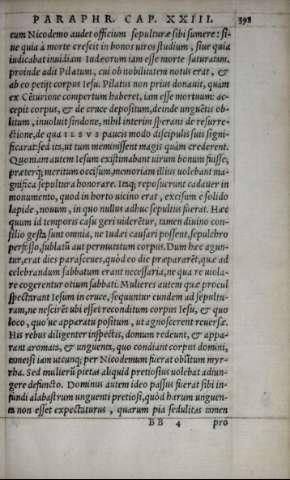 PARAPHR. CAP. XXIII. 398
cum Nicodemo audet officium sepulturæ sibi sumere: si-
ue quia à morte crescit in bonos uiros studium, siue quia
iudicabat inuidiam Iudæorum iam esse morte saturatam.
proinde adit Pilatum, cui ob nobilitatem notus erat, &
ab eo petijt corpus Iesu. Pilatus non prius donauit, quàm
ex Cēturione compertum haberet, iam esse mortuum: ac-
cepit corpus, & de cruce depositum, deinde unguētis ob-
litum, inuoluit sindone, nihil interim sperans de resurre-
ctione, de qua IESVS paucis modo discipulis suis signi-
ficarat: sed ita, ut tum meminissent magis quàm crederent.
Quoniam autem Iesum existimabant uirum bonum fuisse,
præterq; meritum occisum, memoriam illius uolebant ma-
gnifica sepultura honorare. Itaq; reposuerunt cadauer in
monumento, quod in horto uicino erat, excisum è solido
lapide, nouum, in quo nullus adhuc sepultus fuerat. Hæc
quum id temporis casu geri uiderētur, tamen diuino con-
silio gesta sunt omnia, ne Iudæi causari possent, sepulchro
perfosso, sublatū aut permutatum corpus. Dum hæc agun-
tur, erat dies parasceues, quòd eo die præpararēt, quæ ad
celebrandum sabbatum erant necessaria, ne qua re uiola-
re cogerentur otium sabbati. Mulieres autem quæ procul
spectarant Iesum in cruce, sequuntur eundem ad sepultu-
ram, ne nescirēt ubi esset reconditum corpus Iesu, & quo
loco, quo'ue apparatu positum, ut agnoscerent reuersæ.
His rebus diligenter inspectis, domum redeunt, & appa-
rant aromata, & unguenta, quo condiant corpus domini,
iam utcunq; per Nicodemum fuerat oblitum myr-
rha. Sed mulierū pietas aliquid pretiosius uolebat adiun-
gere defuncto. Dominus autem ideo passus fuerat sibi in-
fundi alabastrum unguenti pretiosi, quòd harum unguen-
non esset expectaturus, quarum pia sedulitas
BB 4 pro